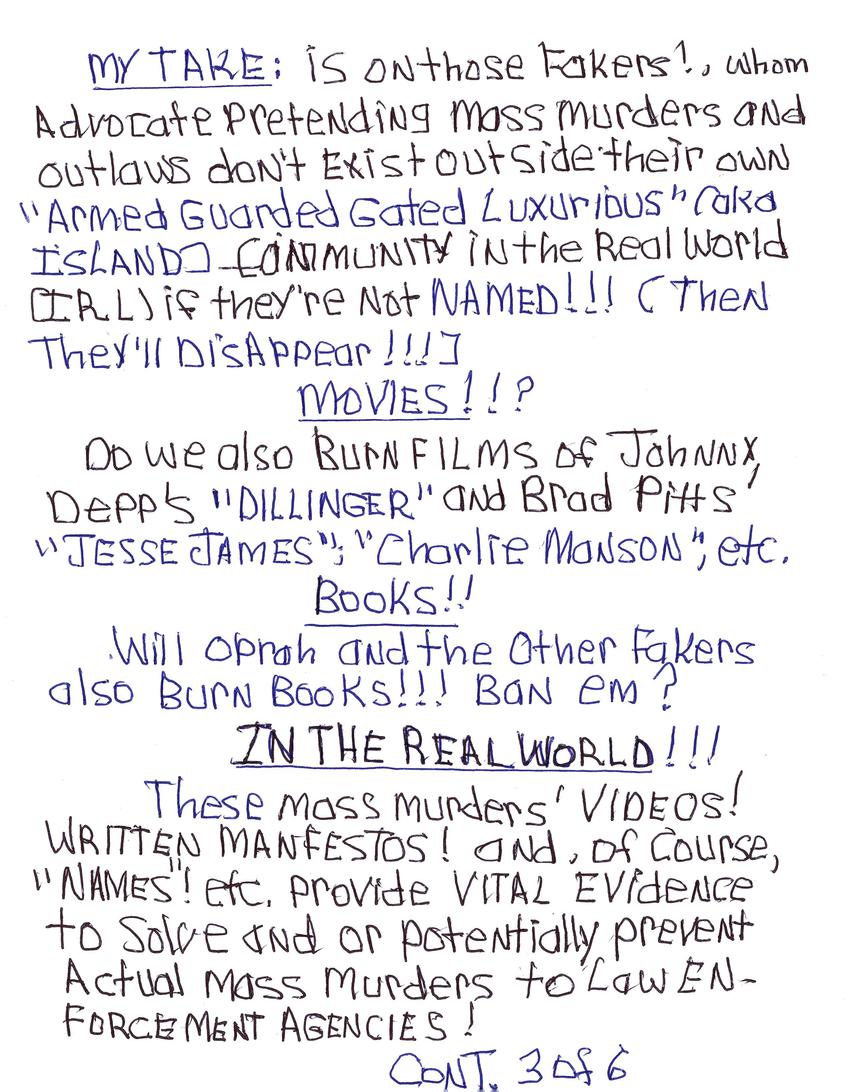 MY TAKE: is on those Fakers!, whom
Advocate Pretending Mass Murders and
outlaws don't Exist outside their own
"Armed Guarded Gated Luxurious" (aka
ISLAND] COMMUNITY in the Real World
[IRL) if they're Not NAMED!!! (Then
They'll DisAppear!!!]
MOVIES!!?
Do we also BURN FILMS of Johnny
Depp's "DILLINGER" and Brad Pitts'
"JESSE JAMES"; "Charlie MANSON", etc.
BOOKS!!
Will Oprah and the Other Fakers
also BURN BOOKS!!! BAN em?
IN THE REAL WORLD!!!
These mass murders' VIDEOS!
WRITTEN MANFESTOS! and, of Course,
"NAMES"! etc. provide VITAL EVidence
to Solve and or potentially prevent
Actual Mass Murders to Law EN-
FORCEMENT AGENCIES!
CONT. 3 of 6